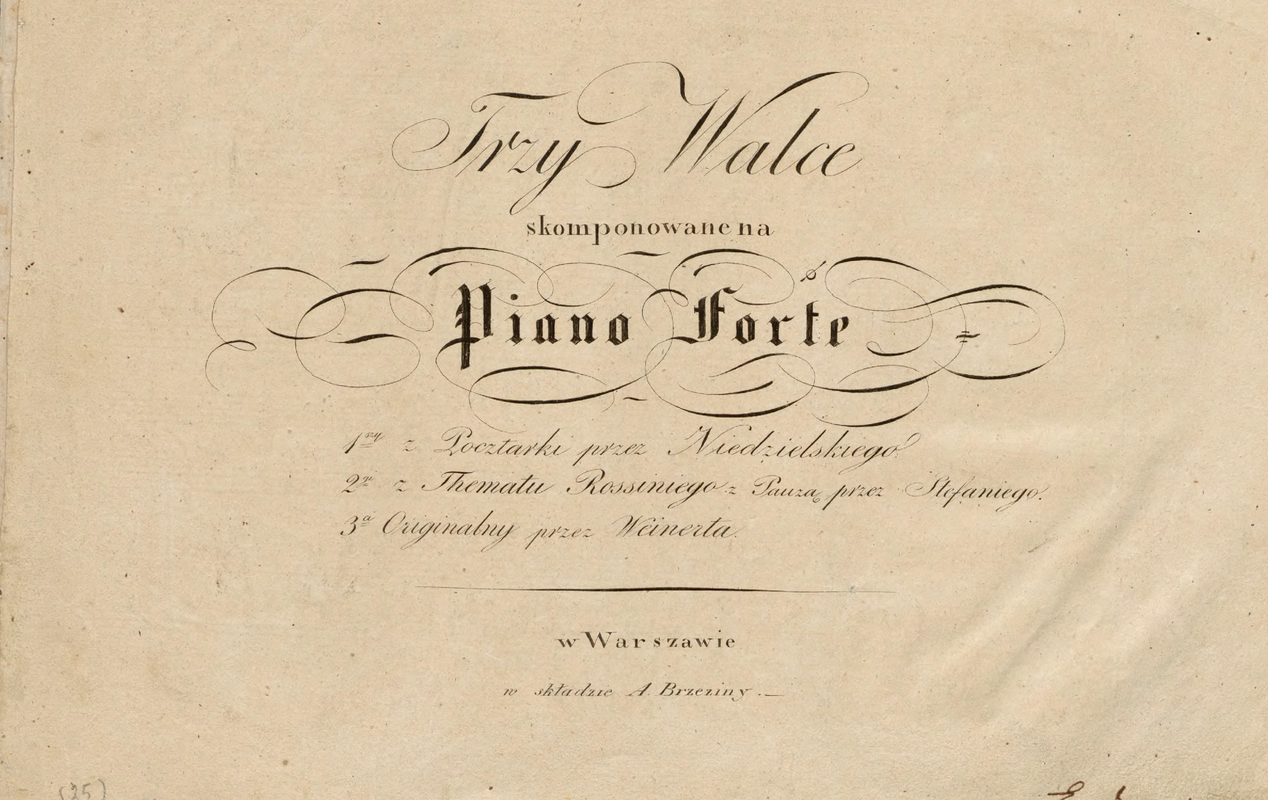 Trzy Walce
skomponowane na
Piano Forte
1szy z Pocztarki przez Niedzielskiego
2gi z Thematu Rossiniego z Pauzą przez Stefaniego.
3ci Originalny przez Weinerta.
w Warszawie
w składzie A. Brzeziny.
(25)